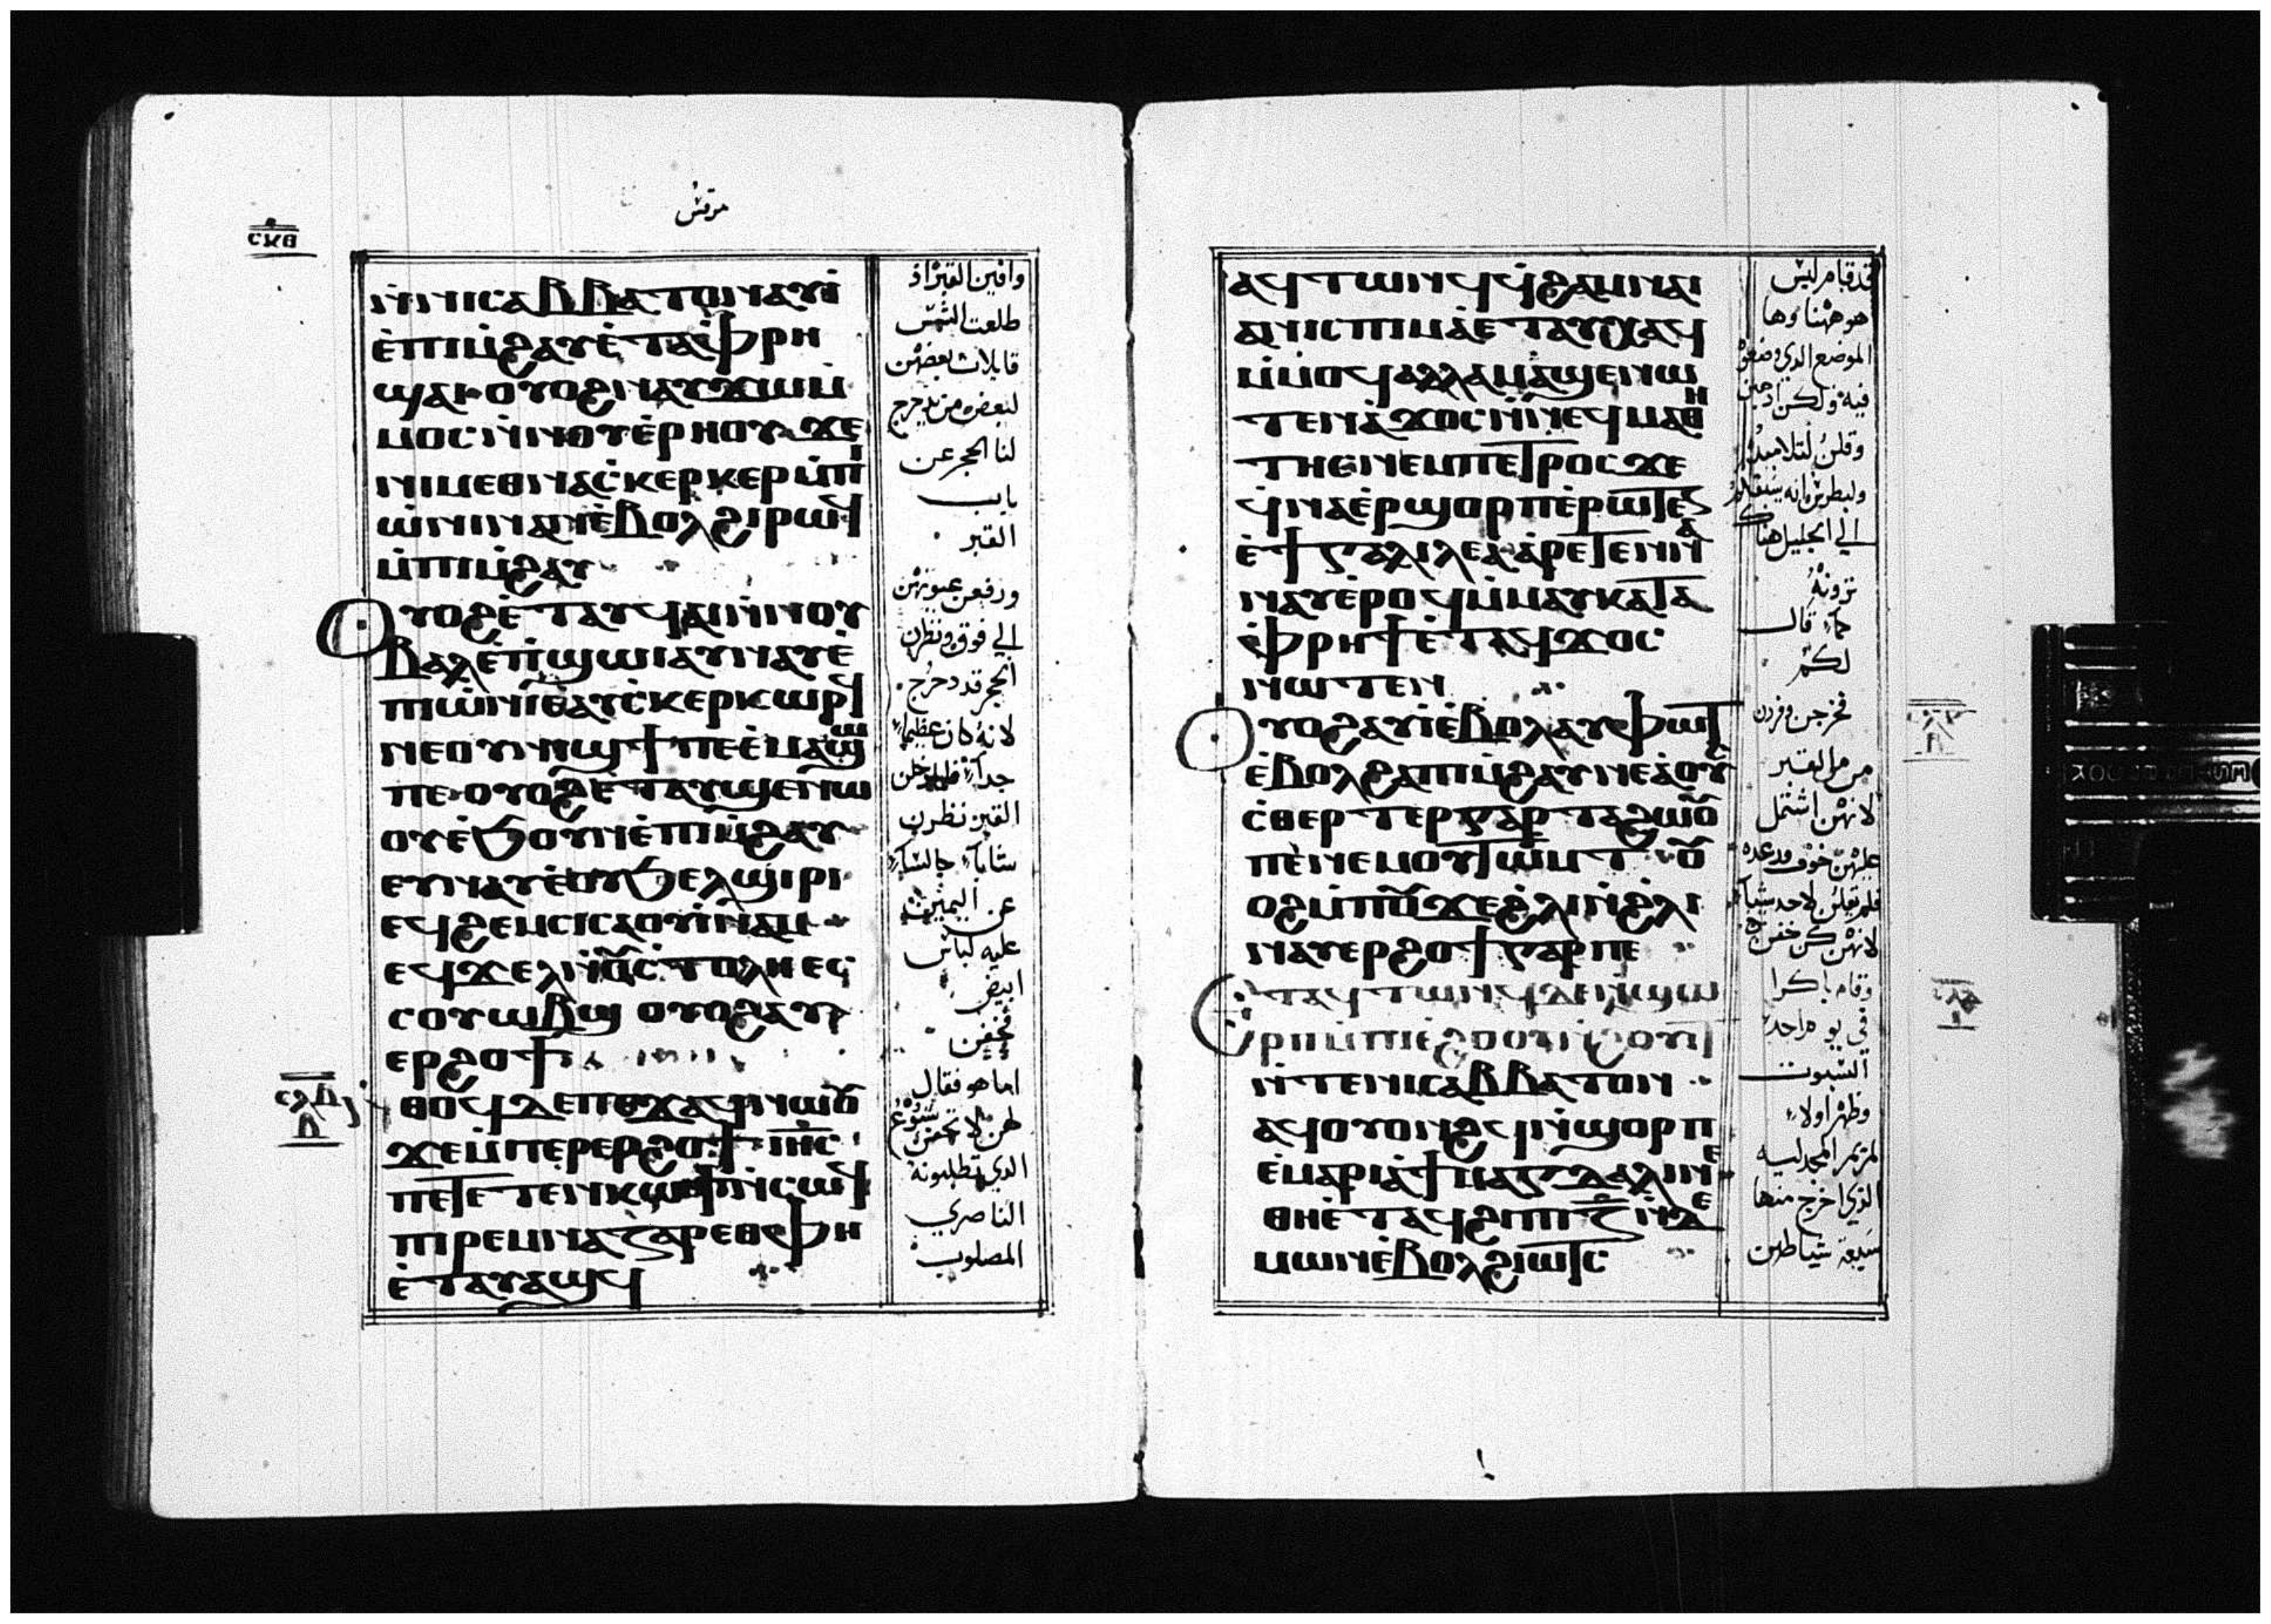 مرقس
ⲥⲕⲑ
ⲛ̀ⲛⲓⲥⲁⲃⲃⲁⲧⲟⲛⲁⲩⲓ̀
ⲉ̀ⲡⲓⲙ̀ϩⲁⲩⲉ̀ⲧⲁⲫ̀ⲣⲏ
ϣⲁⲓ·ⲟⲩⲟϩⲛⲁⲩϫⲱⲙ̀
ⲙⲟⲥⲛ̀ⲛⲟⲩⲉ̀ⲣⲏⲟⲩϫⲉ
ⲛⲓⲙⲉⲑⲛⲁⲥ̀ⲕⲉⲣⲕⲉⲣⲙ̀ⲡⲓ
ⲱ̀ⲛⲓⲛⲁⲛⲉ̀ⲃⲟⲗϩⲓⲣⲱϥ
ⲙ̀ⲡⲓⲙ̀ϩⲁⲩ
ⲟⲩⲟϩⲉ̀ⲧⲁⲩϥⲁⲓⲛ̀ⲛⲟⲩ
ⲃⲁⲗⲉ̀ⲡ̀ϣⲱⲓⲁⲩⲛⲁⲩⲉ̀
ⲡⲓⲱ̀ⲛⲓⲉⲁⲩⲥ̀ⲕⲉⲣⲕⲱⲣϥ
ⲛⲉⲟⲩⲛⲓϣϯⲡⲉⲉ̀ⲙⲁϣⲱ
ⲡⲉ·ⲟⲩⲟϩⲉ̀ⲧⲁⲩϣⲉⲛⲱ
ⲟⲩⲉ̀ϧⲟⲩⲛⲉ̀ⲡⲓⲙ̀ϩⲁⲩ
ⲉⲩⲛⲁⲩⲉ̀ⲟⲩϧⲉⲗϣⲓⲣⲓ
ⲉϥϩⲉⲙⲥⲓⲥⲁⲟⲩⲓ̀ⲛⲁⲙ
ⲉϥϫⲉⲗ ⲥ̀ⲧⲟⲗⲏⲉⲥ
ⲥⲟⲩⲱⲃϣ ⲟⲩⲟϩⲁⲩ
ⲉⲣϩⲟϯ
ⲥⲗⲇ
ⲏ
ⲛ̀ⲑⲟϥⲇⲉⲡⲉϫⲁϥⲛⲱⲟⲩ
ϫⲉⲙ̀ⲡⲉⲣⲉⲣϩⲟϯ ⲓⲏ̅ⲥ̅
ⲡⲉⲧⲉⲧⲉⲛⲕⲱϯⲛ̀ⲥⲱϥ
ⲡⲓⲣⲉⲙⲛⲁⲍⲁⲣⲉⲑⲫⲏ
ⲉ̀ⲧⲁⲩⲁϣϥ
وافين القبر اذ
طلعت الشمس
قايلات بعضهن
لبعض من يدحرج
لنا الحجر عن
باب
القبر
ورفعن عيونهن
الي فوق ونظرن
الحجر قد دحرج
لانه كان عظيما
جدا
القبر نظرن
شابا جالسا
عن اليمين
عليه لباس
ابيض
فخفن
اما هو فقال
لهن لا تخفن يسوع
الذي تطلبونه
الناصري
المصلوب
ⲁϥⲧⲱⲛϥϥ̀ϩⲁⲙⲛⲁⲓ
ⲁⲛⲓⲥⲡⲓⲙⲁⲉ̀ⲧⲁⲩⲭⲁϥ
ⲙ̀ⲙⲟϥⲁⲗⲗⲁⲙⲁϣⲉⲛⲱ
ⲧⲉⲛⲁ̀ϫⲟⲥⲛ̀ⲛⲉϥⲙⲁⲑⲏ
ⲧⲏⲥⲛⲉⲙⲡⲉⲧⲣⲟⲥϫⲉ
ϥ̀ⲛⲁⲉ̀ⲣϣⲟⲣⲡⲉ̀ⲣⲱⲧⲉⲛ
ⲉ̀ϯⲅⲁⲗⲓⲗⲉⲁⲁ̀ⲣⲉⲧⲉⲛⲛⲁ
ⲛⲁⲩⲉ̀ⲣⲟϥⲙ̀ⲙⲁⲩⲕⲁⲧⲁ
ⲫ̀ⲣⲏϯⲉ̀ⲧⲁϥϫⲟⲥ
ⲛⲱⲧⲉⲛ
ⲟⲩⲟϩⲁⲩⲓ̀ⲉ̀ⲃⲟⲗⲁⲩⲫⲱⲧ
ⲉ̀ⲃⲟⲗϩⲁⲡⲓⲙ̀ϩⲁⲩⲛⲉⲁ̀ⲟⲩ
ⲥ̀ⲑⲉⲣⲧⲉⲣⲅⲁⲣⲧⲁϩⲱⲟⲩ
ⲡⲉ̀ⲛⲉⲙⲟⲩⲧⲱⲙⲧ ⲟⲩ
ⲟϩⲙ̀ⲡⲟⲩϫⲉϩ̀ⲗⲓⲛ̀ϩ̀ⲗⲓ
ⲛⲁⲩⲉⲣϩⲟϯⲅⲁⲣⲡⲉ
ⲉ̀ⲧⲁϥⲧⲱⲛϥⲇⲉⲛ̀ϣⲱ
ⲣⲡⲙ̀ⲡⲓⲉ̀ϩⲟⲟⲩⲛ̀ϩⲟⲩⲓⲧ
ⲛ̀ⲧⲉⲛⲓⲥⲁⲃⲃⲁⲧⲟⲛ
ⲁϥⲟⲩⲟⲛϩϥⲛ̀ϣⲟⲣⲡ
ⲉ̀ⲙⲁⲣⲓⲁ̀ϯⲙⲁⲅⲇⲁⲗⲓⲛⲉ
ⲑⲏⲉ̀ⲧⲁϥϩⲓⲡⲓⲍ̅ⲛ̀ⲇⲉ
ⲙⲱⲛⲉ̀ⲃⲟⲗϩⲓⲱⲧⲥ
قد قام ليس
هو ههنا وها
الموضع الذي وضعوه
فيه ولكن اذهبن
وقلن لتلاميذه
ولبطرس انه يسبقكم
الي الجليل هناك
ترونه
كما قال
لكم
فخرجن وفررن
من القبر
لانهن اشتمل
عليهن خوف ورعده
فلم تقلن لاحد شيا
لانهن كن خفن
وقام باكرا
في يوم احد
السبوت
وظهر اولا
لمريم المجدليه
الذي اخرج منها
سبعة شياطين